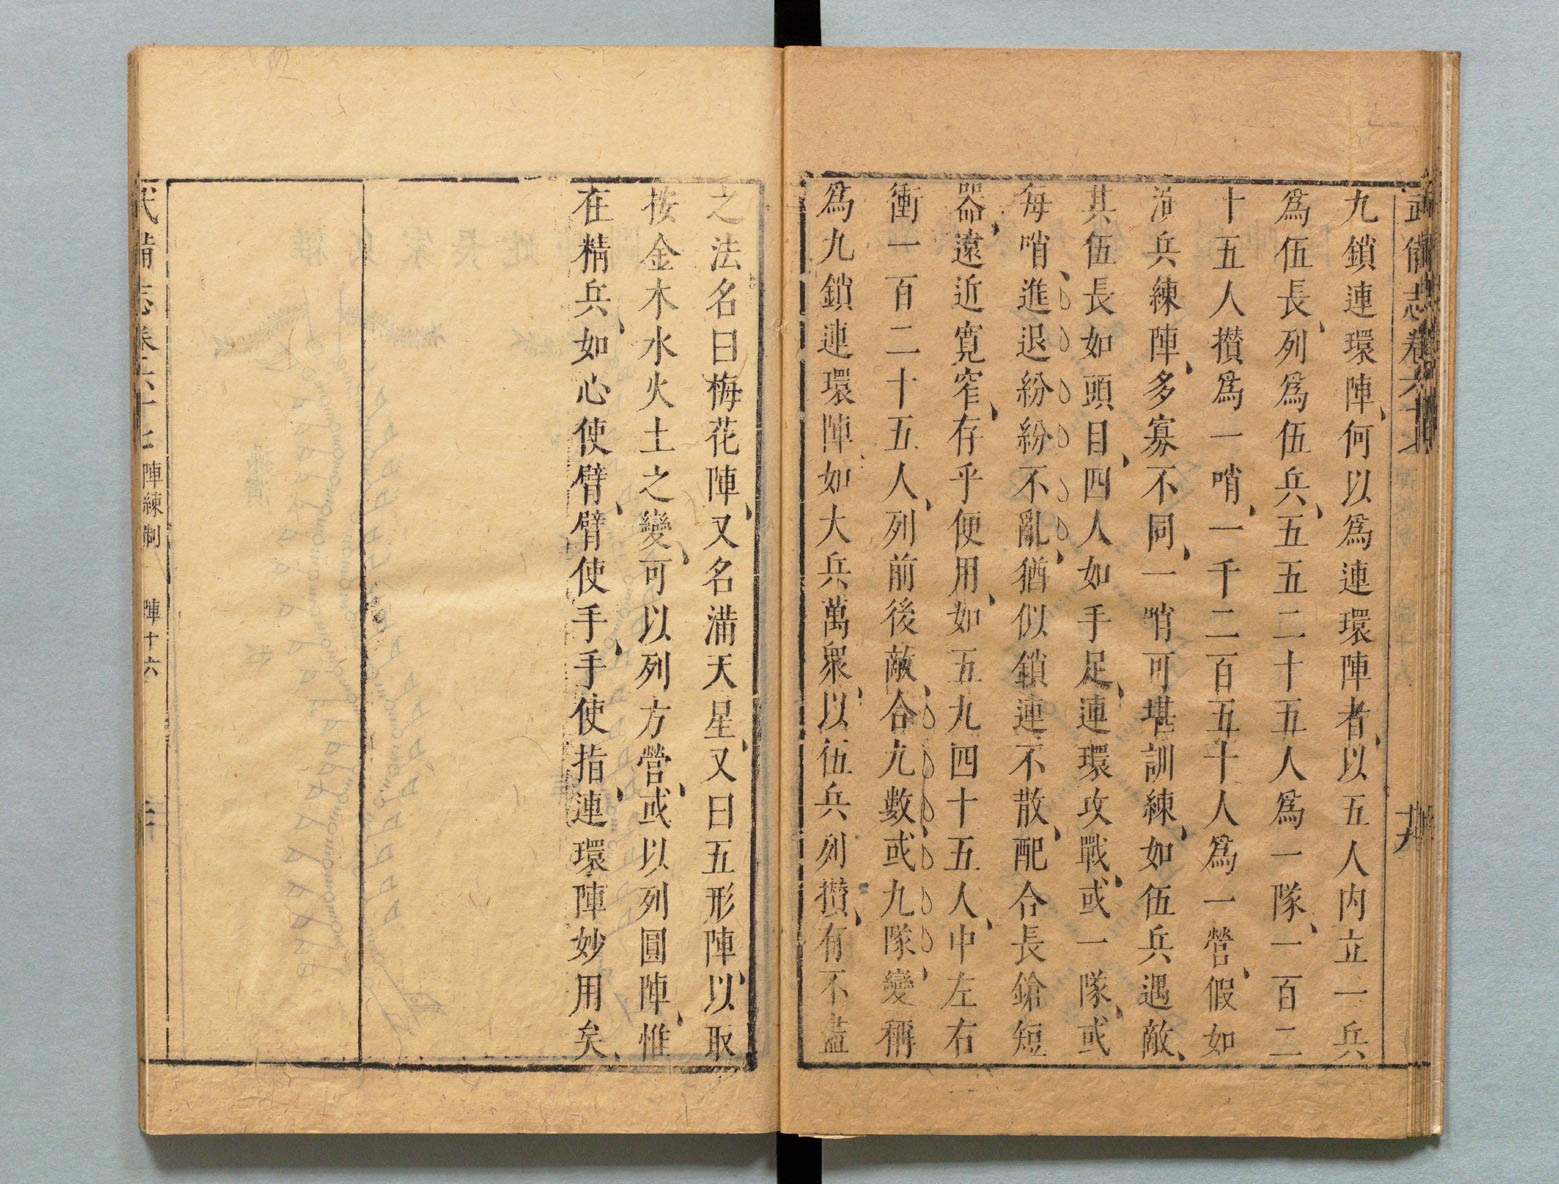 武備志卷六十七
九鎖連環陣何以爲連環陣者以五人内立一兵
爲伍長列爲伍兵五五二十五人爲一隊一百二
十五人攢爲一哨一千二百五十人爲一營假如
兵練陣多寡不同一哨可堪訓練如伍兵遇敵
其伍長如頭目四人如手足連環攻戰或一隊或
每哨進退紛紛不亂猶似鎖連不散配合長鎗短
器遠近寬窄存乎便用如五九四十五人中左右
衝一百二十五人列前後敵合九數或九隊變稱
爲九鎖連環陣如大兵萬衆以伍兵列攢有不盡
之法名曰梅花陣又名滿天星又曰五形陣以取
按金木水火土之變可以列方營或以列圓陣惟
在精兵如心使臂臂使手手使指連環陣妙用矣
武備志卷六十七 陣練制 陣十六